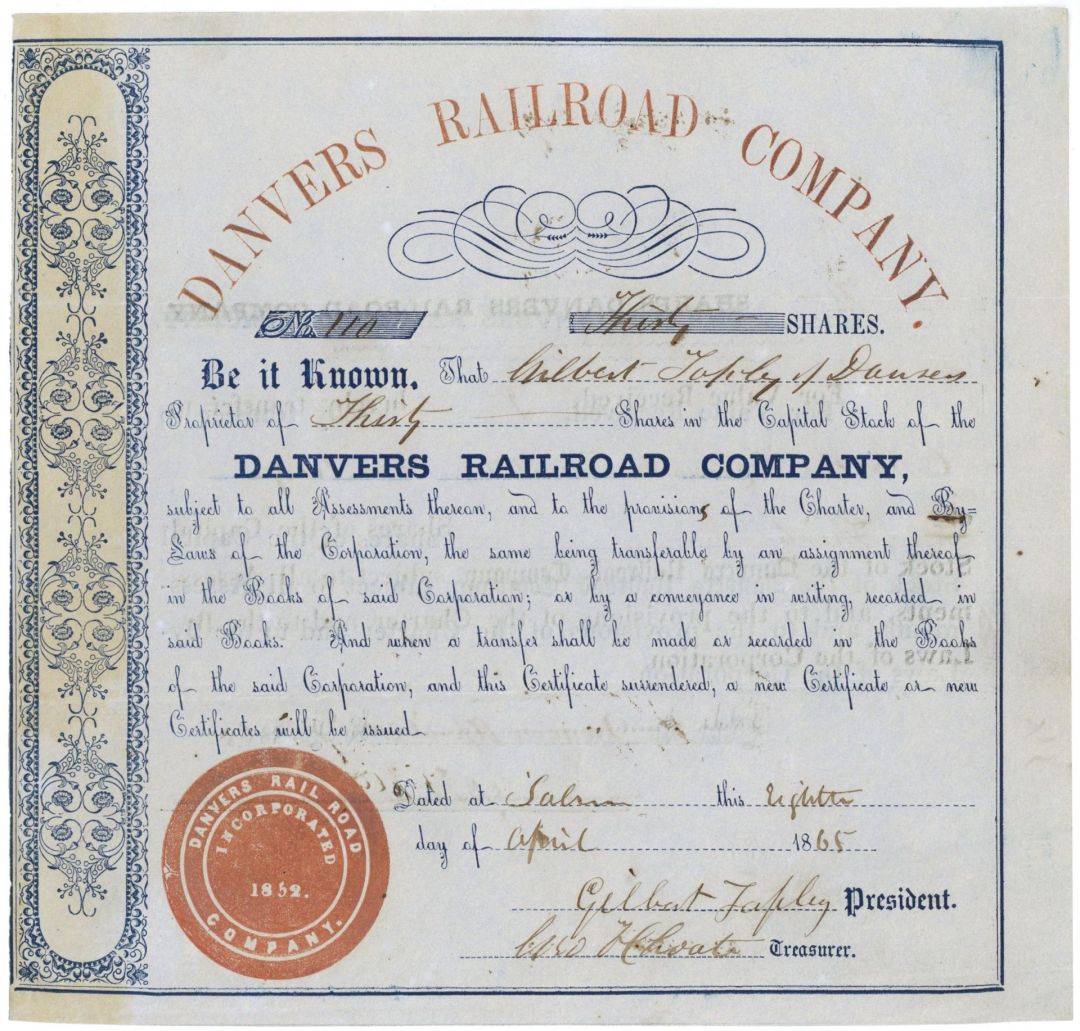 DANVERS RAILROAD COMPANY.
No. 110 Thirty SHARES.
Be it Known, That Gilbert Tapley of Danvers
Proprietor of Thirty Shares in the Capital Stock of the
DANVERS RAILROAD COMPANY,
subject to all Assessments thereon, and to the provisions of the Charter, and By-
Laws of the Corporation, the same being transferable by an assignment thereof
in the Books of said Corporation; or by a conveyance in writing, recorded in
said Books. And when a transfer shall be made or recorded in the Books
of the said Corporation, and this Certificate surrendered, a new Certificate or new
Certificates will be issued
Dated at Salem this Eighth
day of April 1865
Gilbert Tapley President.
Geo F Choate Treasurer.
DANVERS RAIL ROAD
INCORPORATED
1852.
COMPANY.